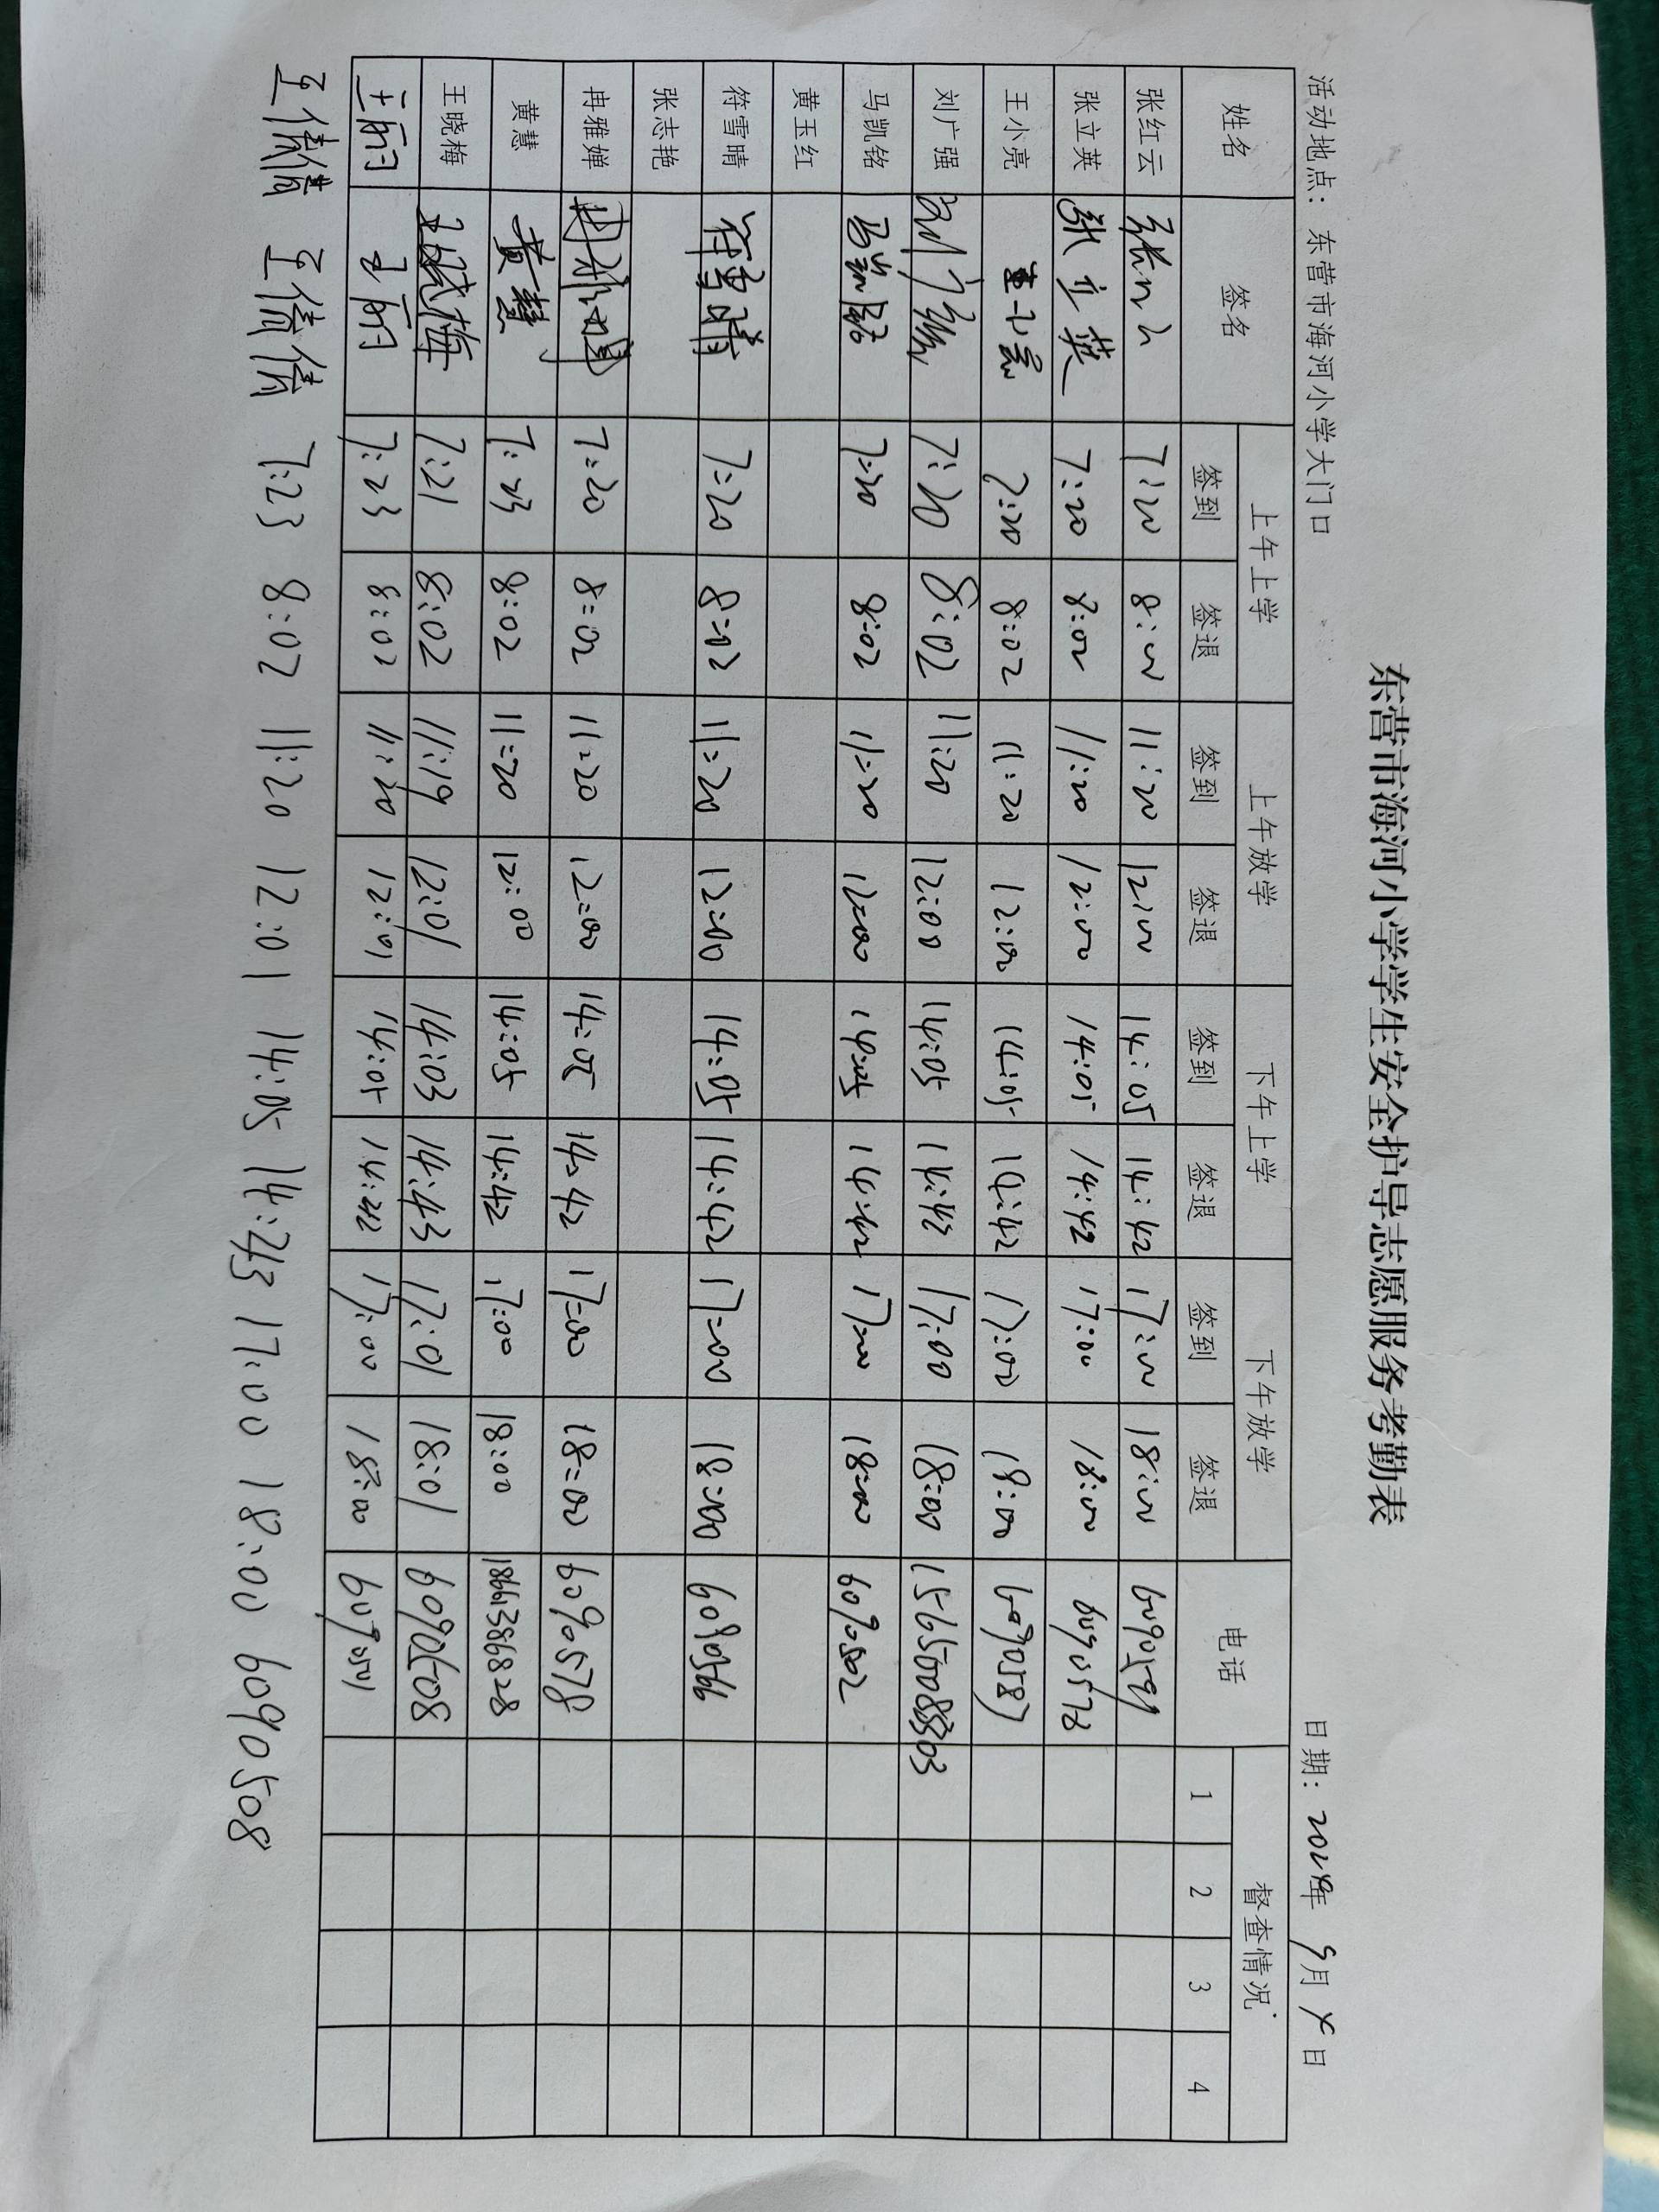 东营市海河小学学生安全护导志愿服务考勤表
活动地点：东营市海河小学大门口 日期：2024年 9月 4日
姓名 签名 上午上学 上午放学 下午上学 下午放学 电话 督查情况
签到 签退 签到 签退 签到 签退 签到 签退 1 2 3 4
张红云 张红云 7:20 8:02 11:20 12:00 14:05 14:42 17:00 18:00 6090591
张立英 张立英 7:20 8:02 11:20 12:00 14:05 14:42 17:00 18:00 6090578
王小亮 王小亮 7:20 8:02 11:20 12:00 14:05 14:42 17:00 18:00 6090587
刘广强 刘广强 7:20 8:02 11:20 12:00 14:05 14:42 17:00 18:00
马凯铭 马凯铭 7:20 8:02 11:20 12:00 14:05 14:42 17:00 18:00 6090502
黄玉红
符雪晴 符雪晴 7:20 8:02 11:20 12:00 14:05 14:42 17:00 18:00 6090566
张志艳
冉雅婵 冉雅婵 7:20 8:02 11:20 12:00 14:05 14:42 17:00 18:00 6090578
黄慧 黄慧 7:23 8:02 11:20 12:00 14:05 14:42 17:00 18:00 18661386828
王晓梅 王晓梅 7:21 8:02 11:19 12:01 14:03 14:43 17:01 18:01 6090508
7:23 8:02 11:20 12:01 14:05 14:42 17:00 18:00
王倩倩 王倩倩 7:23 8:02 11:20 12:01 14:05 14:43 17:00 18:00 6090508